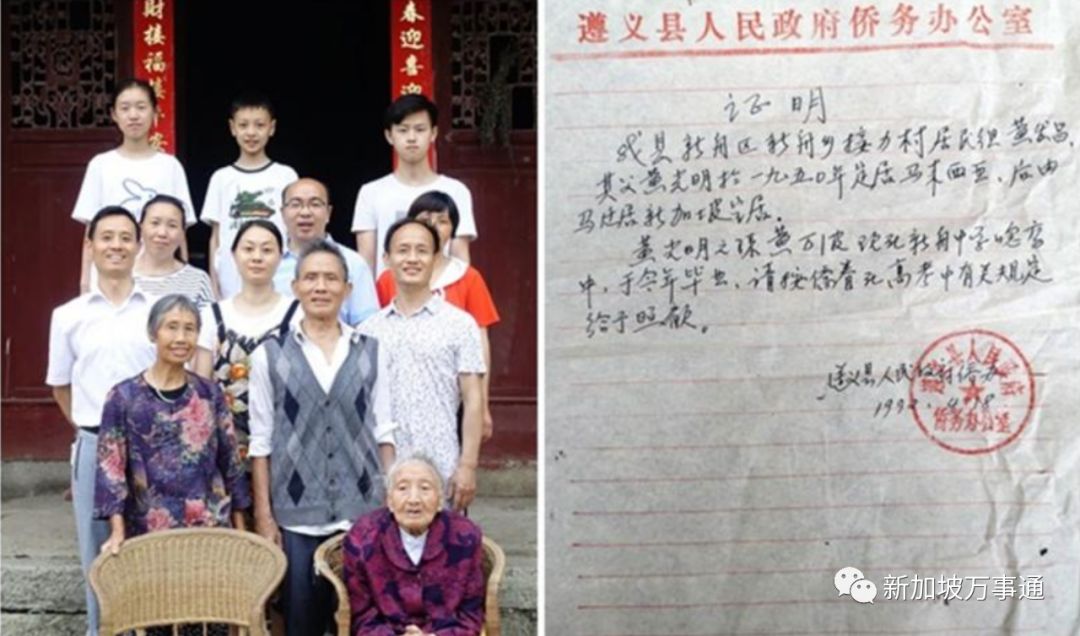 財接福
安
春迎喜迎
遵义县人民政府侨务办公室
证明
我县新舟区新舟乡接力村居民组黄昌,
其父黄光明於一九五〇年定居马来西亚,后由
马迁居新加坡定居。
黄光明之孫黄万波现在新舟中学高
中,于今年毕业,请按侨眷在高考中有关规定
给予照顾。
遵义县人民政府侨办
遵义县人民政府
侨务办公室
新加坡万事通